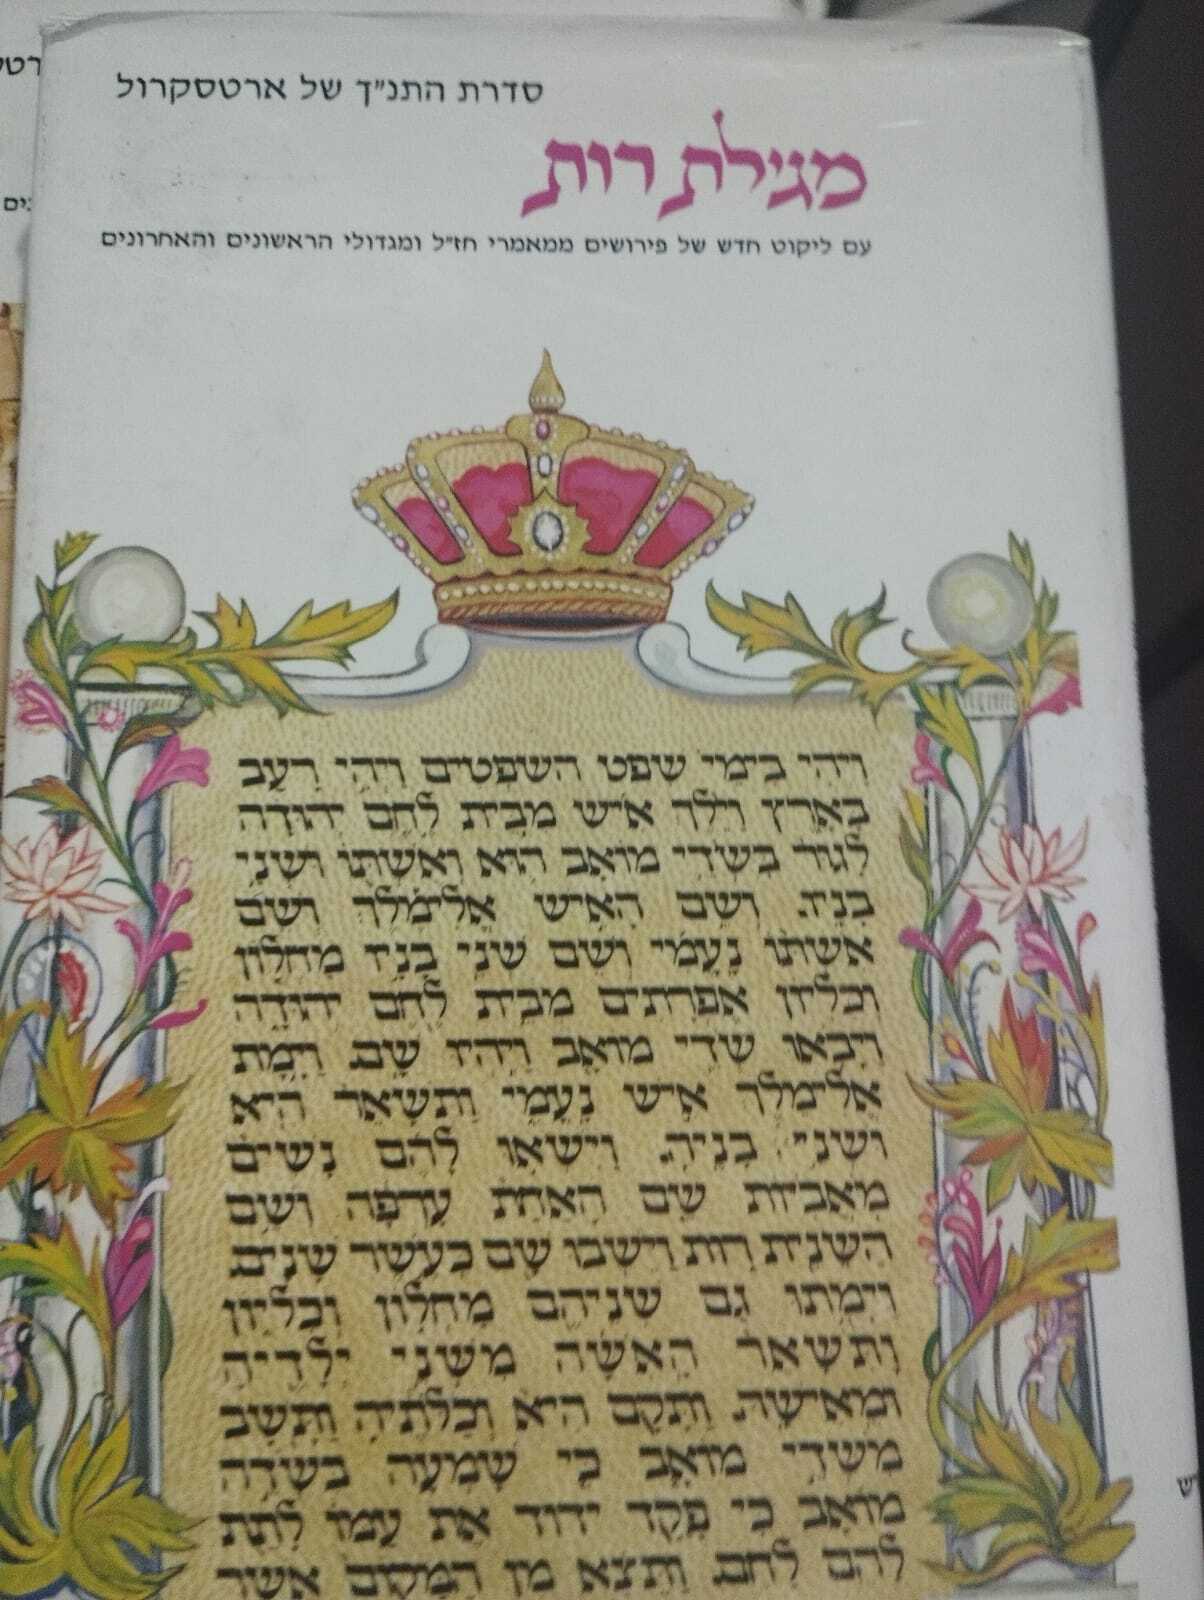 סדרת התנ״ך של ארטסקרול
מגילת רות
עם ליקוט חדש של פירושים ממאמרי חז״ל ומגדולי הראשונים והאחרונים
ויהי בימי שפט השפטים ויהי רעב
בארץ וילך איש מבית לחם יהודה
לגור בשדי מואב הוא ואשתו ושני
בניו. ושם האיש אלימלך ושם
אשתו נעמי ושם שני בניו מחלון
וכליון אפרתים מבית לחם יהודה
ויבאו שדי מואב ויהיו שם. וימת
אלימלך איש נעמי ותשאר היא
ושני בניה. וישאו להם נשים
מאביות שם האחת ערפה ושם
השנית רות וישבו שם כעשר שנים.
וימתו גם שניהם מחלון וכליון
ותשאר האשה משני ילדיה
ומאישה. ותקם היא וכלתיה ותשב
משדי מואב כי שמעה בשדה
מואב כי פקד ידוד את עמו לתת
להם לחם. ותצא מן המקום אשר